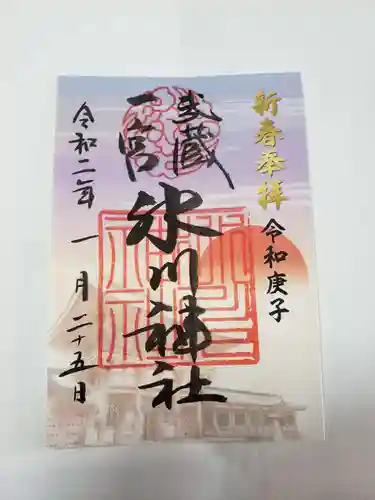 新春奉拝
令和庚子
武蔵
一宮
氷川神社
令和二年 一月二十五日